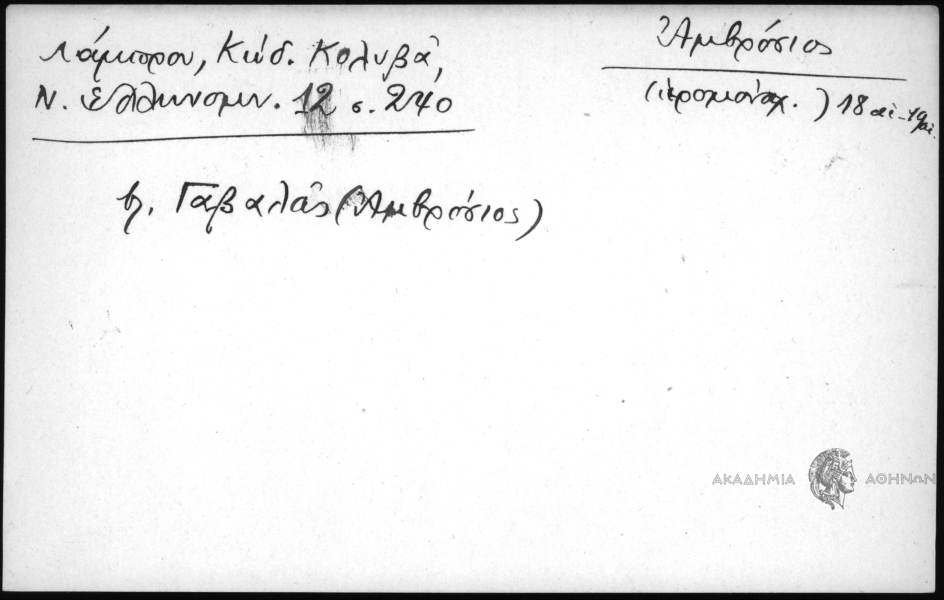 Λάμπρου, Κώδ. Κολυβᾶ,
Ν. Ἑλληνομν. 12 σ. 240
Ἀμβρόσιος
(ἱερομόναχ.) 18 αἰ-19 αἰ.
βλ. Γαβαλᾶς (Ἀμβρόσιος)
ΑΚΑΔΗΜΙΑ ΑΘΗΝΩΝ